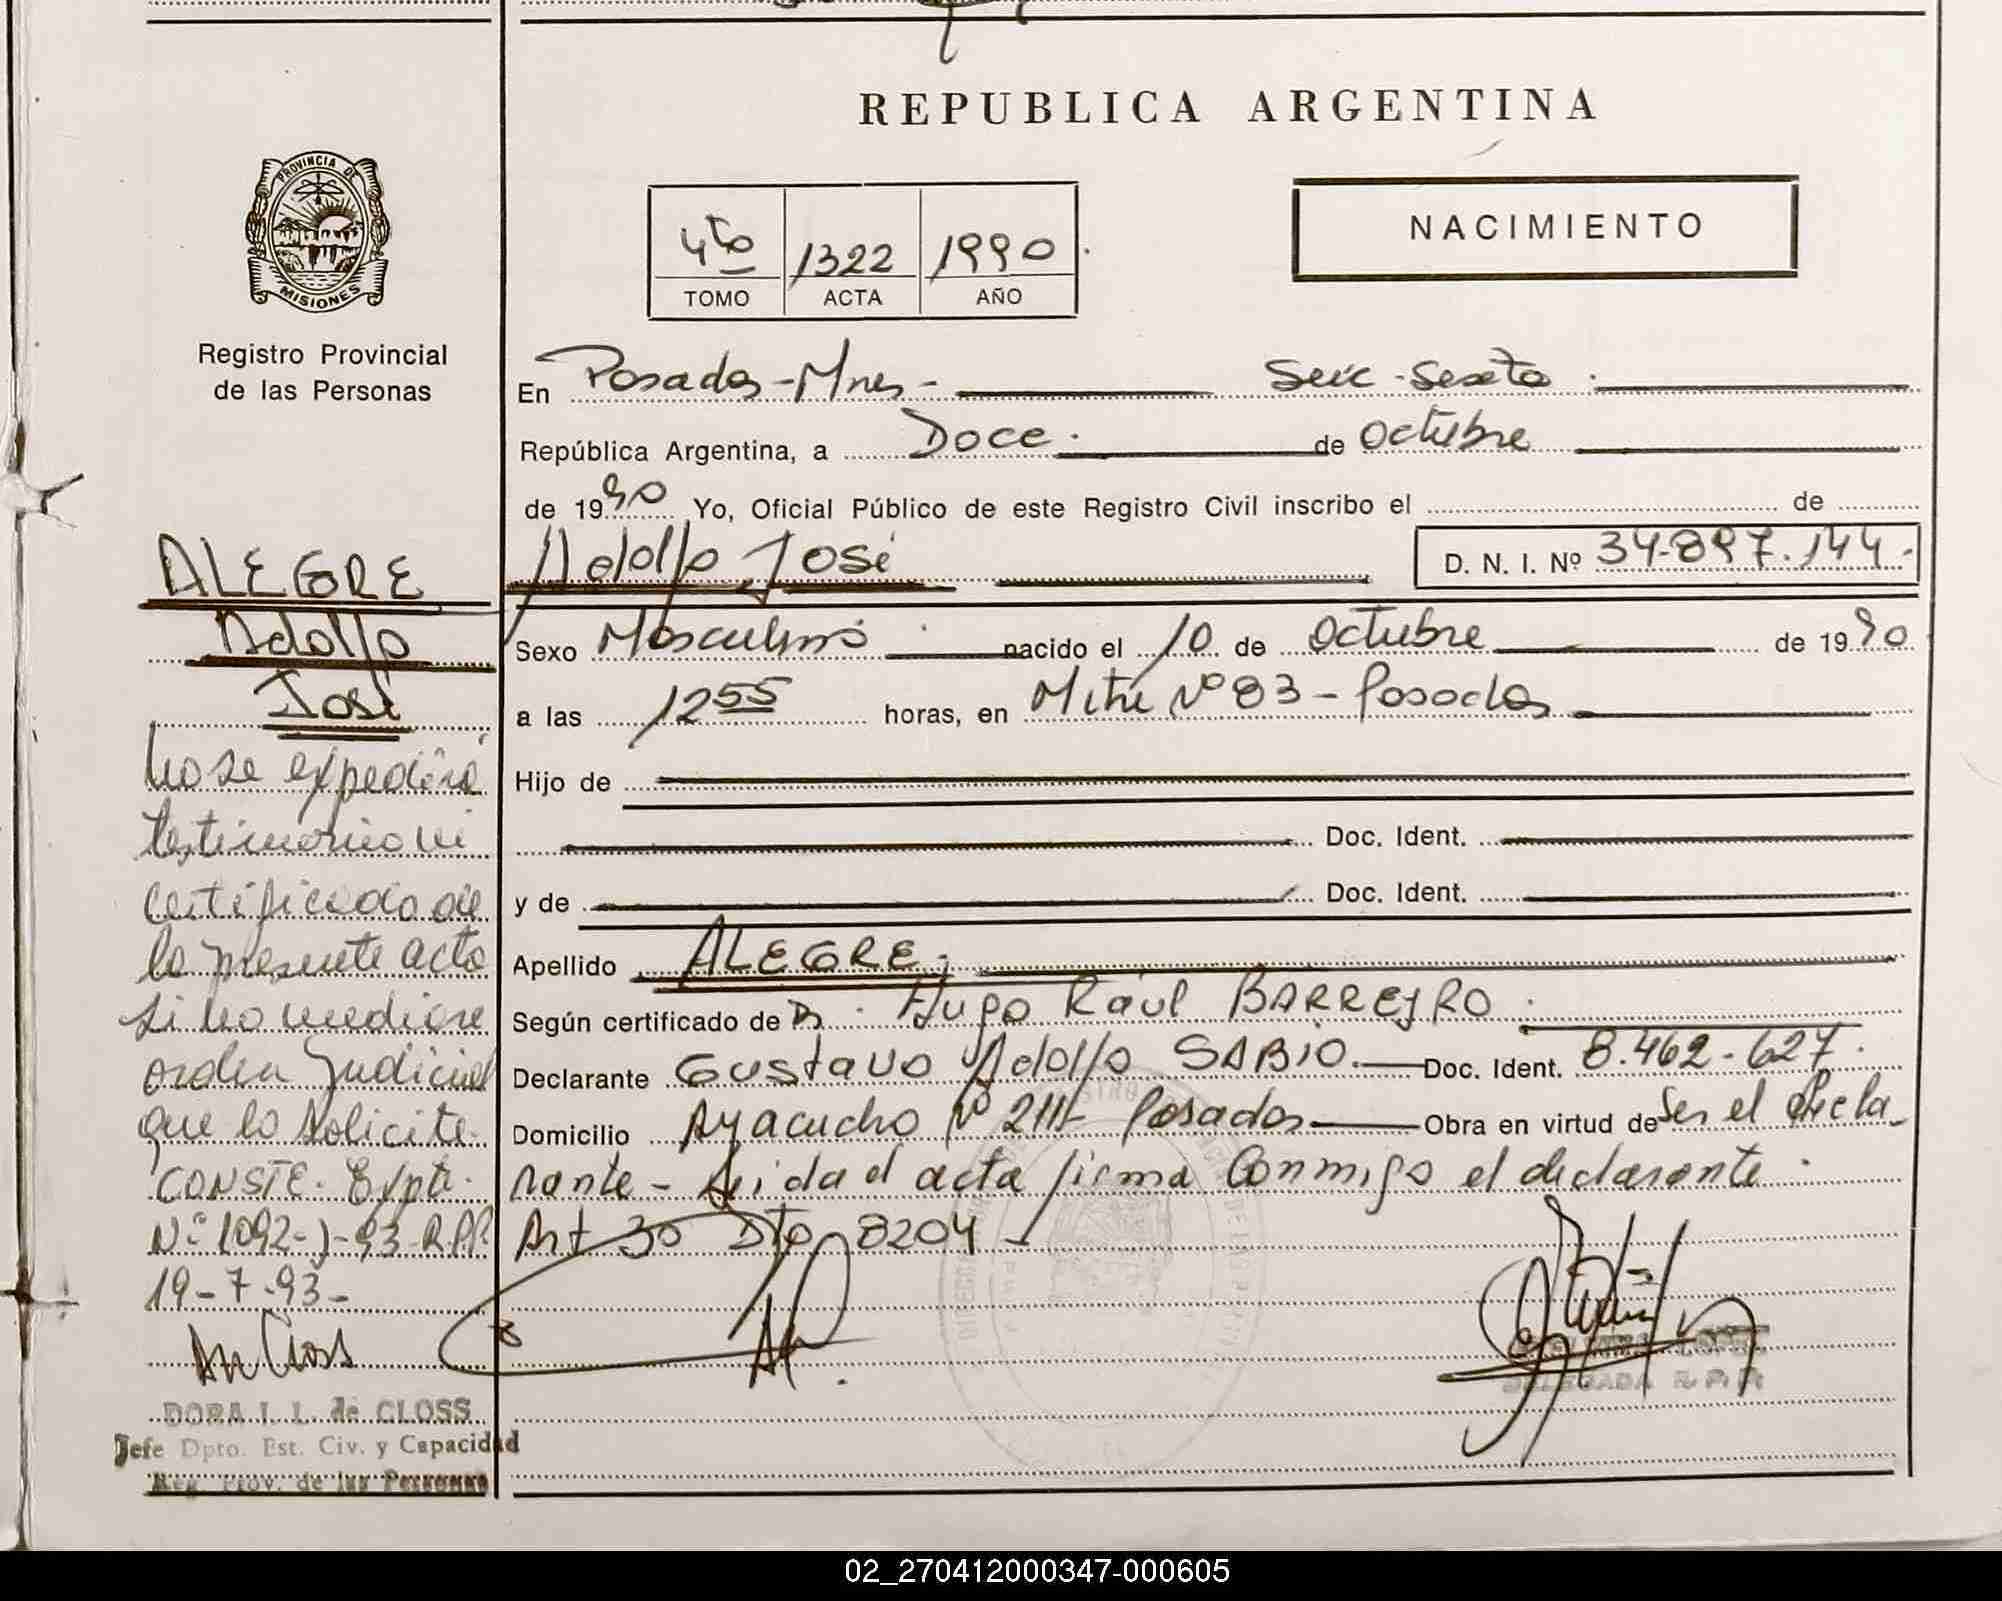 REPUBLICA ARGENTINA
PROVINCIA DE
MISIONES
Registro Provincial
de las Personas
4to 1322 1990
TOMO ACTA AÑO
NACIMIENTO
En Posadas - Mnes - Secc - Sexta.
República Argentina, a Doce. de Octubre
de 1990 Yo, Oficial Público de este Registro Civil inscribo el de
Adolfo José D. N. I. Nº 34.897.144.
Sexo Masculino nacido el 10 de Octubre de 1990
a las 12 55 horas, en Mitre Nº 83 - Posadas
Hijo de
Doc. Ident.
y de Doc. Ident.
Apellido ALEGRE.
Según certificado de Dr. Hugo Raúl BARREYRO.
Declarante Gustavo Adolfo SABIO. Doc. Ident. 8.462.627.
Domicilio Ayacucho Nº 211 - Posadas Obra en virtud de Ser el decla-
rante - Leida el acta firma conmigo el declarante.
Art 30 Dto 8204
DELEGADA R. P. P.
ALEGRE
Adolfo
José
No se expedirá
testimonio ni
certificado de
la presente acta
si no mediare
orden judicial
que lo solicite.
CONSTE. Expte.
Nº 1092-J-93-R.P.P.
19-7-93-
DORA I. L. de CLOSS
Jefe Dpto. Est. Civ. y Capacidad
Reg. Prov. de las Personas
02_270412000347-000605